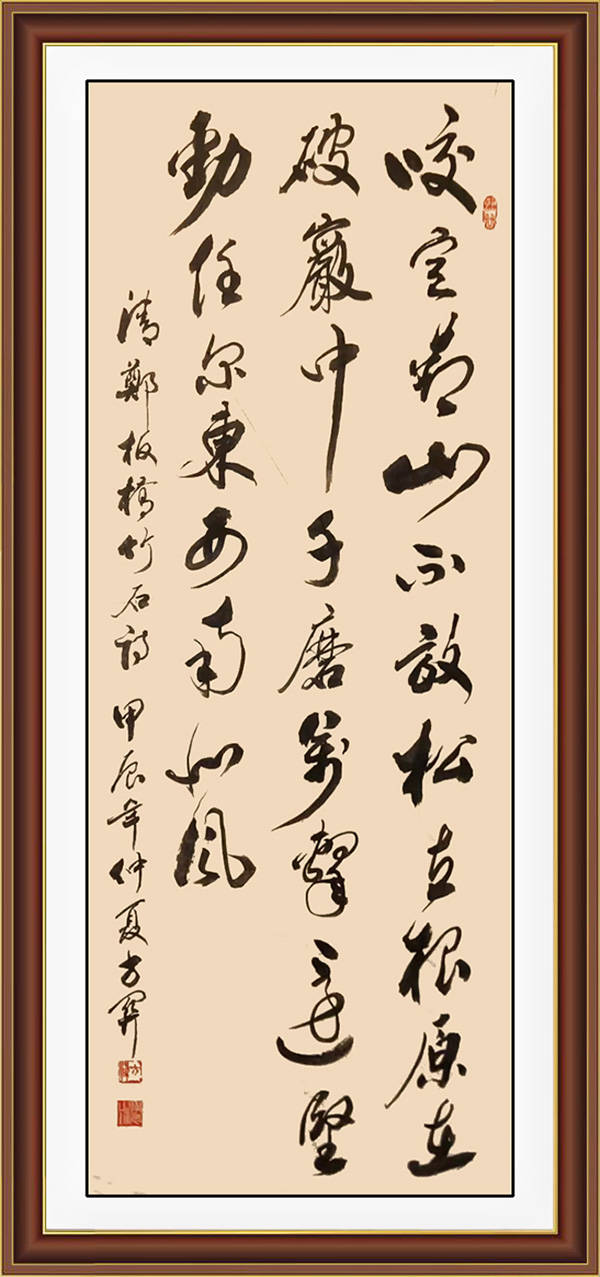 咬定青山不放松立根原在
破巖中千磨萬擊還堅
勁任尔東西南北風
清鄭板橋竹石詩 甲辰年仲夏方